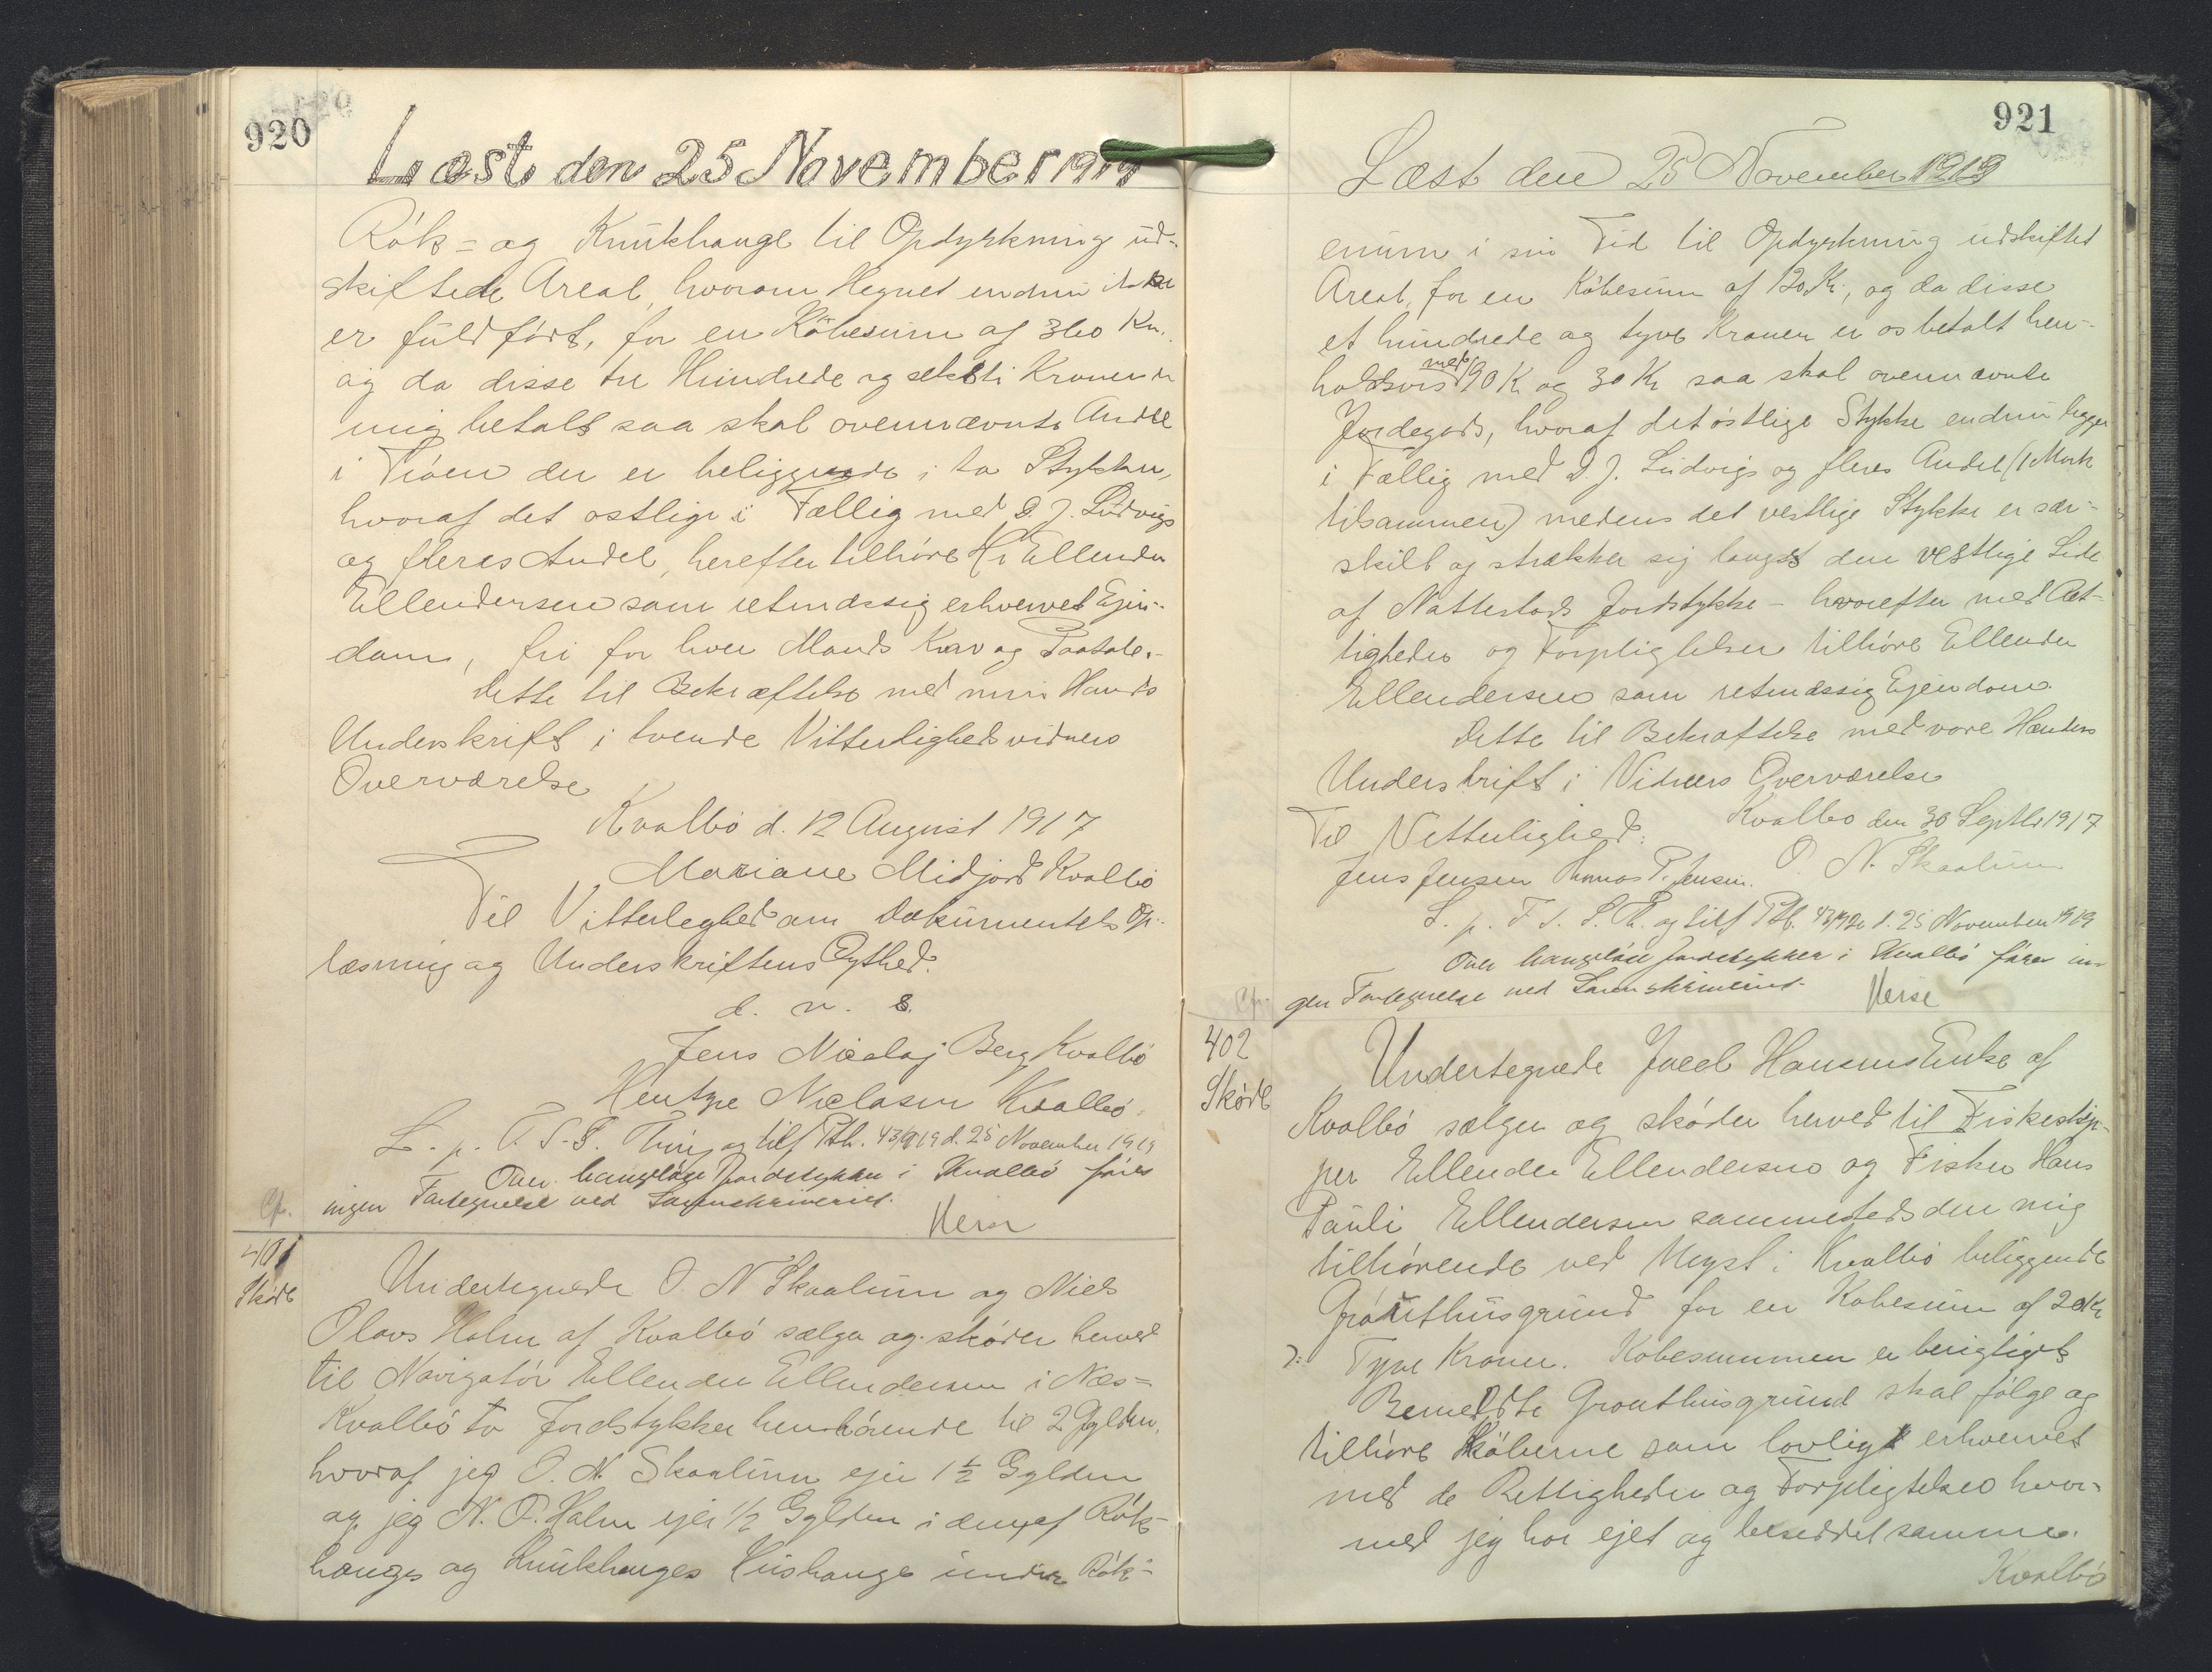 920
Læst den 25 November 1919
Rók- og Knúkhauge til Opdyrkning ud-
skiftede Areal, hvorom Hegnet endnu ikke
er fuldført, for en Købesum af 360 Kr.
og da disse tre Hundrede og seksti Kroner er
mig betalt saa skal ovennævnte Andel
i Tróen der er beliggende i to Stykker,
hvoraf det østlige i Fællig med D. J. Ludvigs
og fleres Andel, herefter tilhøre Hr Ellender
Ellendersen som retmæssig erhvervet Ejen-
dom, fri for hver Mands Krav og Paatale.
Dette til Bekræftelse med min Hands
Underskrift i tvende Vitterlighedsvidners
Overværelse
Kvalbø d. 12 August 1917
Mariane Midjord Kvalbø
Til Vitterleghed om Dokumentets Op-
læsning og Underskriftens Ægthed.
d. u. s.
Jens Nicolaj Berg Kvalbø
Hentze Niclasen Kvalbø.
L. p. F. T. S. Thing og tilf Ptb. 43/1919 d. 25 November 1919
Over haugeløse Jordstykker i Kvalbø føres
ingen Fortegnelse ved Sorenskriveriet.
Cfr.
401
Skøde
Undertegnede O N Skaalum og Niels
Olavs Holm af Kvalbø sælger og skøder herved
til Navigatør Ellender Ellendersen i Næs-
Kvalbø to Jordstykker henhørende til 2 Gylden,
hvoraf jeg O. N. Skaalum ejer 1½ Gylden
og jeg N. O. Holm ejer ½ Gylden i den af Rók-
hauges og Knúkhauges Húshauge under Rók-
921
Læst den 25 November 1919
enum i sin Tid til Opdyrkning udskiftet
Areal, for en Købesum af 120 Kr., og da disse
et hundrede og tyve Kroner er os betalt hen-
holdsvis med 90 K og 30 Kr saa skal ovennævnte
Jordegods, hvoraf det østlige Stykke endnu ligger
i Fællig med D. J. Ludvigs og fleres Andel (1 Mark
tilsammen) medens det vestlige Stykke er sær-
skilt og strækker sig langs den vestlige Side
af Nattestads Jordstykke - hvorefter med Ret-
tigheder og Forpligtelser tilhøre Ellender
Ellendersen som retmæssig Ejendom.
Dette til Bekræftelse med vore Hænders
Underskrift i Vidners Overværelse
Kvalbø den 30 Septbr 1917
Til Vitterlighed:
O. N. Skaalum
Jens Jensen Thomas P. Jensen.
L. p. F. T. S. Th. og tilf Ptb. 43/1920 d. 25 November 1919
Over haugeløse Jordstykker i Kvalbø føres in-
gen Fortegnelse ved Sorenskriveriet.
Cfr.
402
Skøde
Undertegnede Jacob Hansens Enke af
Kvalbø sælger og skøder herved til Fiskeskip-
per Ellender Ellendersen og Fisker Hans
Pauli Ellendersen sammesteds den mig
tilhørende ved Nyst i Kvalbø beliggende
Gróuthusgrund for en Købesum af 20 Kr
ɔ: Tyve Kroner. Købesummen er berigtiget
Bemeldte Grouthusgrund skal følge og
tilhøre Køberne som lovligt erhvervet
med de Rettigheder og Forpligtelser hvor-
med jeg har ejet og besiddet samme.
Kvalbø